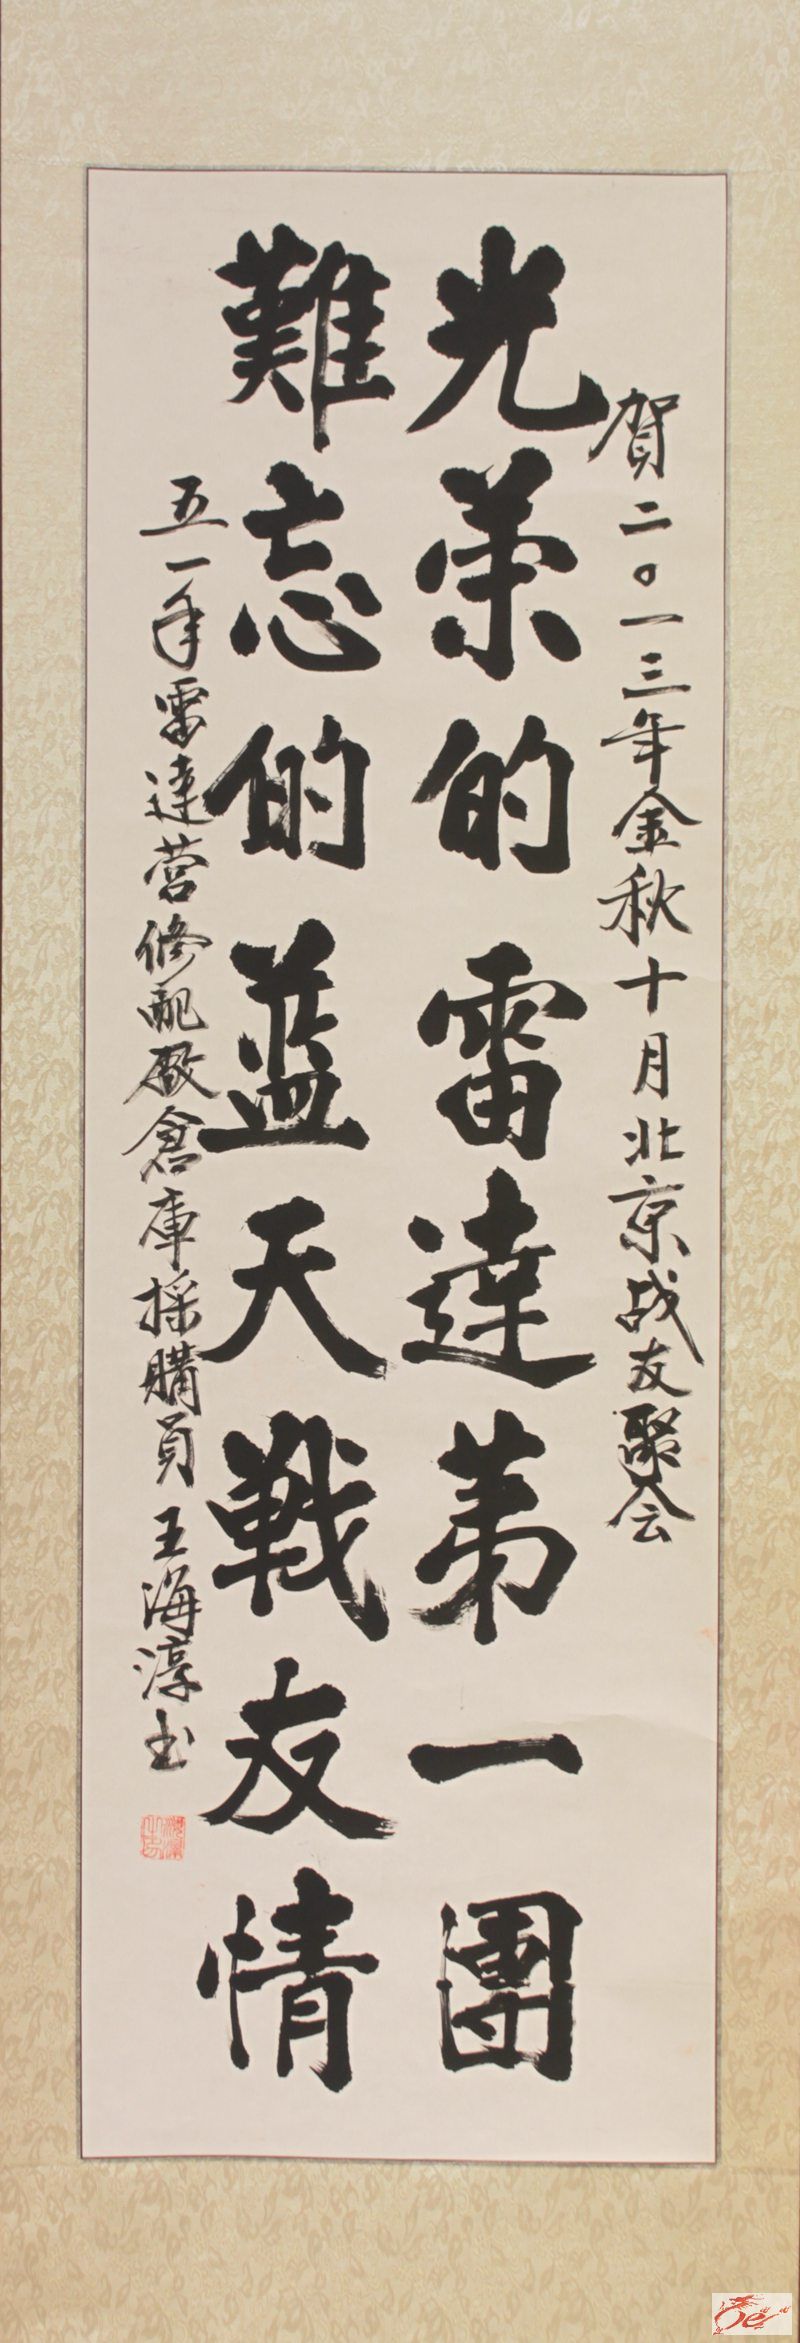 賀二〇一三年金秋十月北京战友聚会
光荣的雷達第一團
難忘的蓝天戰友情
五一年雷達营修配廠倉庫採購員王海淳书